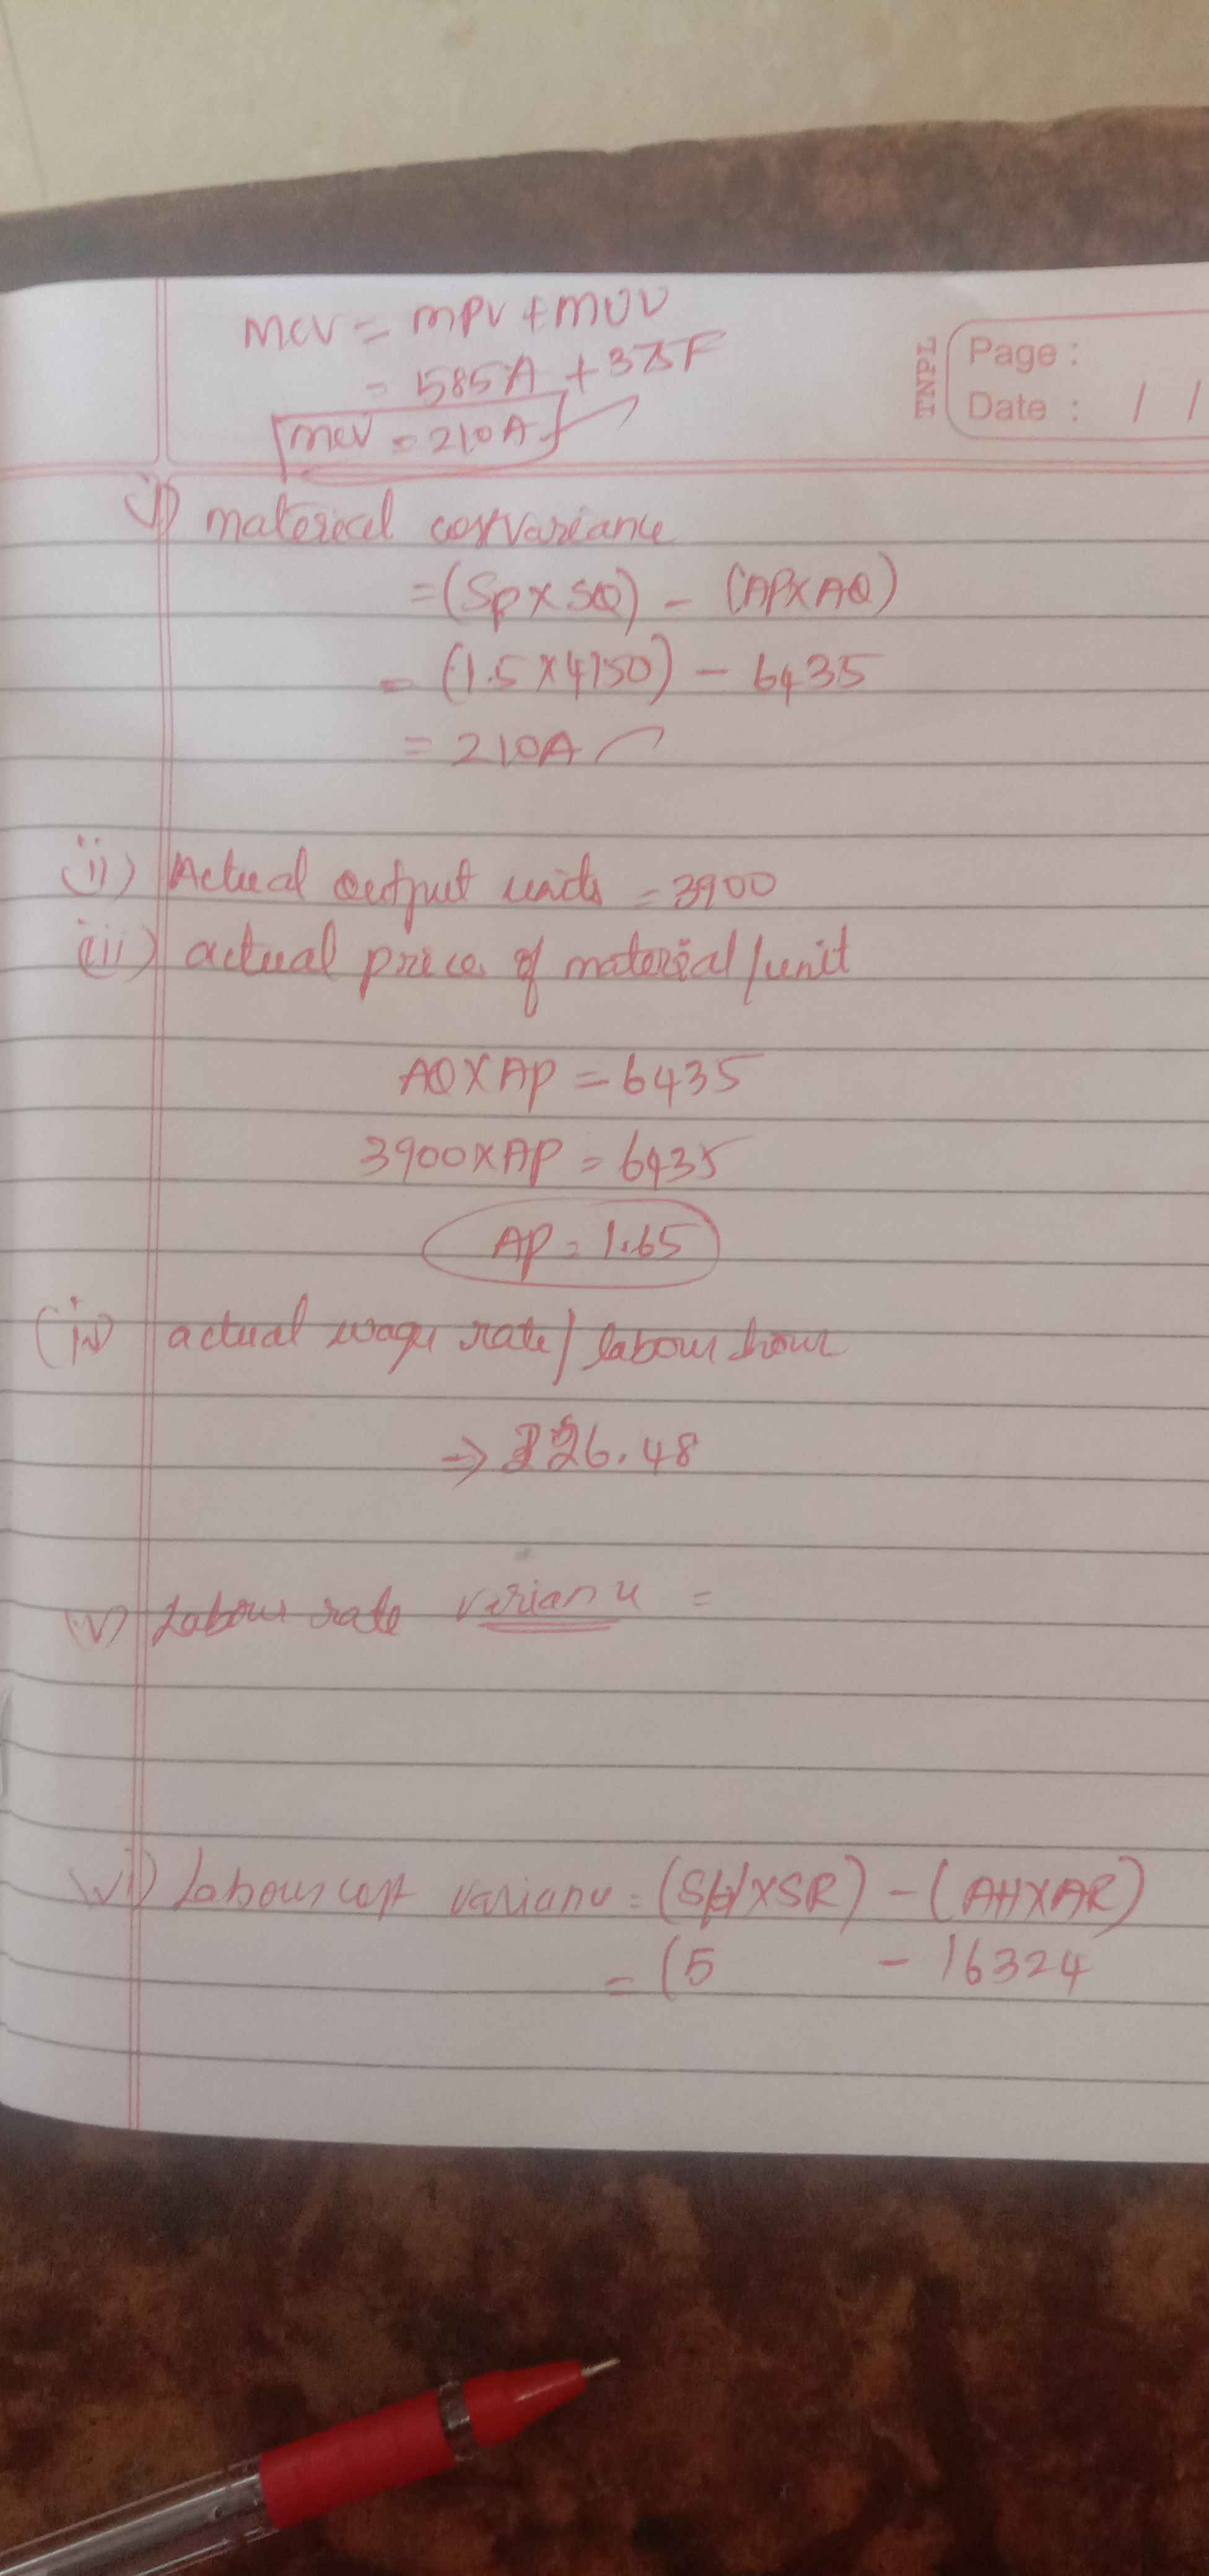 MCV = MPV + MUV
= 585A + 375F
MCV = 210A
TNPL
Page :
Date : / /
i) material cost variance
= (SP X SQ) - (AP X AQ)
= (1.5 X 4150) - 6435
= 210A
ii) Actual output units = 3900
iii) actual price of material/unit
AQ X AP = 6435
3900 X AP = 6435
AP = 1.65
(iv) actual wage rate/labour hour
⇒ 26.48
(v) Labour rate variance =
vi) Labour cost variance = (SH X SR) - (AH X AR)
= (5 - 16324